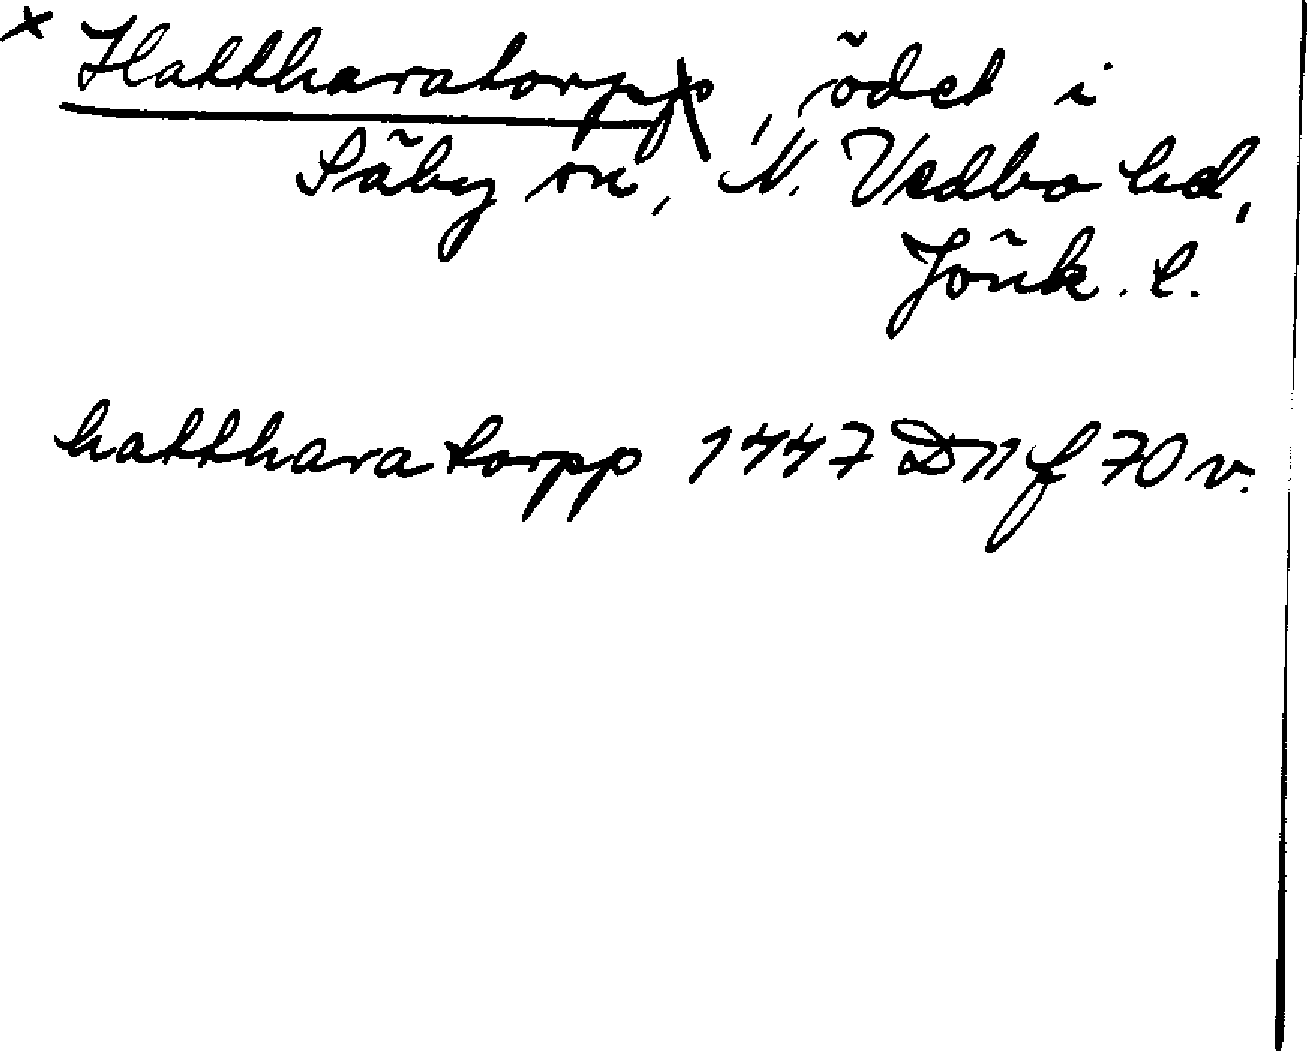 × Hattharatorp, ödet i
Säby sn, N. Vedbo hd,
Jönk. l.
hatthara torpp 1447 D11 f 70 v.